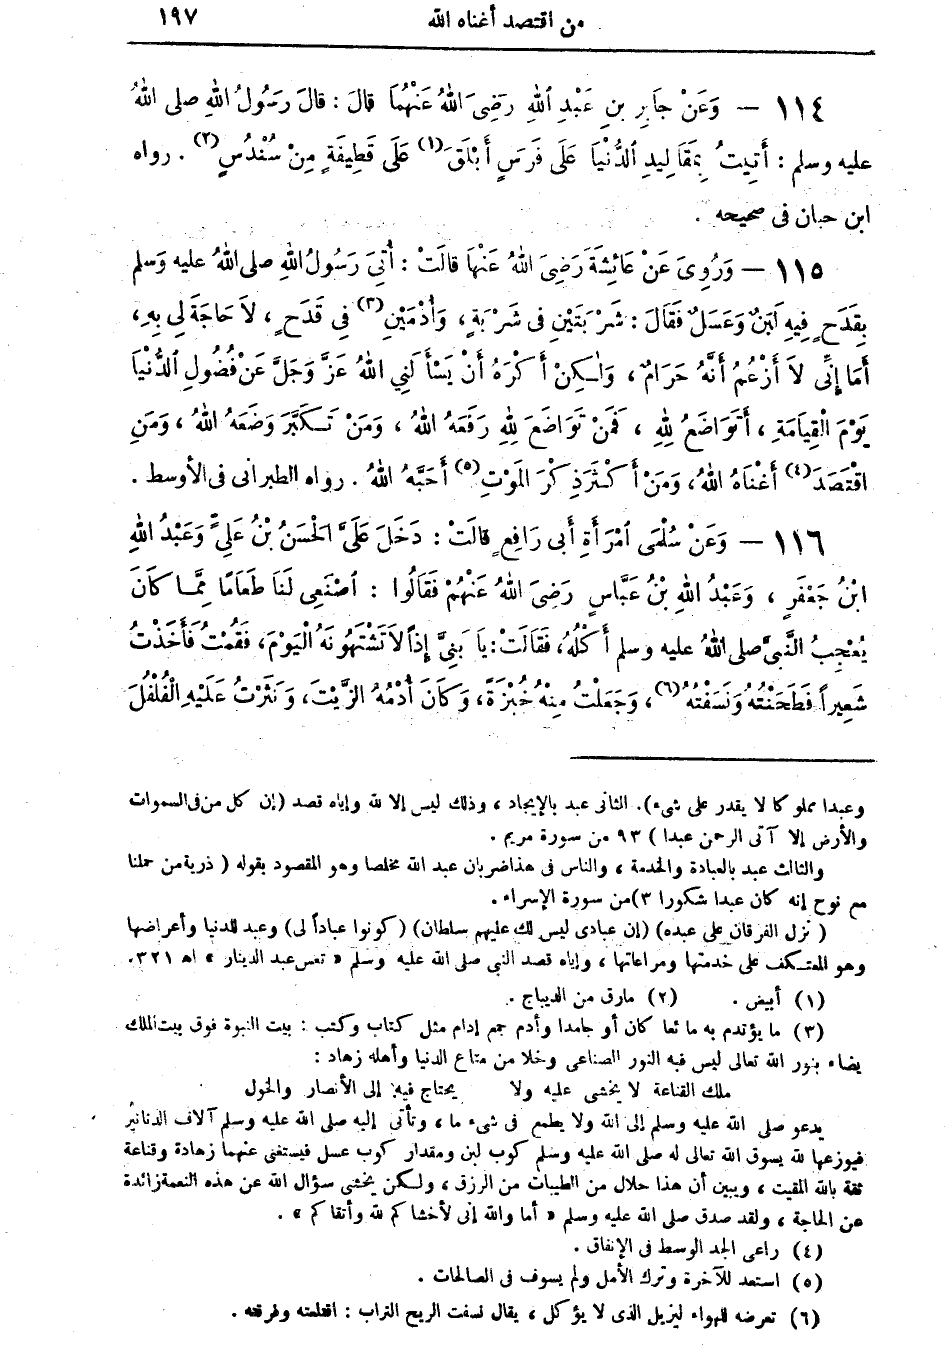 من اقتصد أغناه الله ١٩٧
١١٤ — وَعَنْ جَابِرِ بنِ عَبْدِ اللهِ رَضِيَ اللهُ عَنْهُمَا قالَ : قالَ رَسُولُ اللهِ صلى اللهُ
عليه وسلم : أُتِيتُ بِمَقَالِيدِ الدُّنْيَا عَلَى فَرَسٍ أَبْلَقَ (١) عَلَى قَطِيفَةٍ مِنْ سُنْدُسٍ (٢) . رواه
ابن حبان فى صحيحه .
١١٥ — وَرُوِىَ عَنْ عَائِشَةَ رَضِىَ اللهُ عَنْهَا قالَتْ : أُتِىَ رَسُولُ اللهِ صلى اللهُ عليه وَسلم
بِقَدَحٍ فِيهِ لَبَنٌ وَعَسَلٌ فَقَالَ : شَرْبَتَيْنِ فى شَرْبَةٍ ، وَأُدْمَيْنِ (٣) فِي قَدَحٍ ، لاَ حَاجَةَ لِي بِهِ ،
أَمَا إِنِّى لاَ أَزْعُمُ أَنَّهُ حَرَامٌ ، وَلٰكِنْ أَكْرَهُ أَنْ يَسْأَلَنِي اللهُ عَزَّ وَجَلَّ عَنْ فُضُولِ الدُّنْيَا
يَوْمَ الْقِيَامَةِ ، أَتَوَاضَعُ لِلهِ ، فَمَنْ تَوَاضَعَ لِلهِ رَفَعَهُ اللهُ ، وَمَنْ تَكَبَّرَ وَضَعَهُ اللهُ ، وَمَنِ
اقْتَصَدَ (٤) أَغْنَاهُ اللهُ ، وَمَنْ أَكْثَرَ ذِكْرَ المَوْتِ (٥) أَحَبَّهُ اللهُ . رواه الطبرانى فى الأوسط .
١١٦ — وَعَنْ سُلْمَى امْرَأَةِ أَبى رَافِعٍ قالَتْ : دَخَلَ عَلَىَّ الْحَسَنُ بْنُ عَلِىٍّ وَعَبْدُ اللهِ
ابْنُ جَعْفَرٍ ، وَعَبْدُ اللهِ بْنُ عَبَّاسٍ رَضِىَ اللهُ عَنْهُمْ فَقَالُوا : اصْنَعِى لَنَا طَعَامًا مِمَّا كَانَ
يُعْجِبُ النَّبىَّ صلى اللهُ عليه وسلم أَكْلُهُ، فَقَالَتْ : يَا بَنِىَّ إِذاً لاَتَشْتَهُونَهُ الْيَوْمَ، فَقُمْتُ فَأَخَذْتُ
شَعِيراً فَطَحَنْتُهُ وَنَسَفْتُهُ (٦) ، وَجَعَلْتُ مِنْهُ خُبْزَةً، وَكَانَ أُدْمُهُ الزَّيْتَ، وَنَثَرْتُ عَلَيْهِ الْفُلْفُلَ
وعبدا مملوكا لا يقدر على شىء) . الثانى عبد بالإيجاد ، وذلك ليس إلا لله وإياه قصد (إن كل من فى السموات
والأرض إلا آتى الرحمن عبدا ) ٩٣ من سورة مريم .
والثالث عبد بالعبادة والخدمة ، والناس فى هذا ضربان عبد الله مخلصا وهو المقصود بقوله ( ذرية من حملنا
مع نوح إنه كان عبدا شكورا ٣) من سورة الإسراء .
( نزل الفرقان على عبده) (إن عبادى ليس لك عليهم سلطان) (كونوا عباداً لى) وعبد للدنيا وأعراضها
وهو المعتكف على خدمتها ومراعاتها ، وإياه قصد النبى صلى الله عليه وسلم « تعس عبد الدينار » اه ٣٢١ .
(١) أبيض . (٢) مارق من الديباج .
(٣) ما يؤتدم به مائعا كان أو جامدا وأدم جمع إدام مثل كتاب وكتب : بيت النبوة فوق بيت الملك
يضاء بنور الله تعالى ليس فيه النور الصناعى وخلا من متاع الدنيا وأهله زهاد :
ملك القناعة لا يخشى عليه ولا يحتاج فيه إلى الأنصار والخول
يدعو صلى الله عليه وسلم إلى الله ولا يطمع فى شىء ما ، وتأتى إليه صلى الله عليه وسلم آلاف الدنانير
فيوزعها لله يسوق الله تعالى له صلى الله عليه وسلم كوب لبن ومقدار كوب عسل فيستغنى عنهما زهادة وقناعة
ثقة بالله المقيت ، ويبين أن هذا حلال من الطيبات من الرزق ، ولكن يخشى سؤال الله عن هذه النعمة زائدة
عن الحاجة ، ولقد صدق صلى الله عليه وسلم « أما والله إنى لأخشاكم لله وأتقاكم » .
(٤) راعى الحد الوسط فى الإنفاق .
(٥) استعد للآخرة وترك الأمل ولم يسوف فى الصالحات .
(٦) تعرضه للهواء ليزيل الذى لا يؤكل ، يقال نسفت الريح التراب : اقتلعته وفرقته .